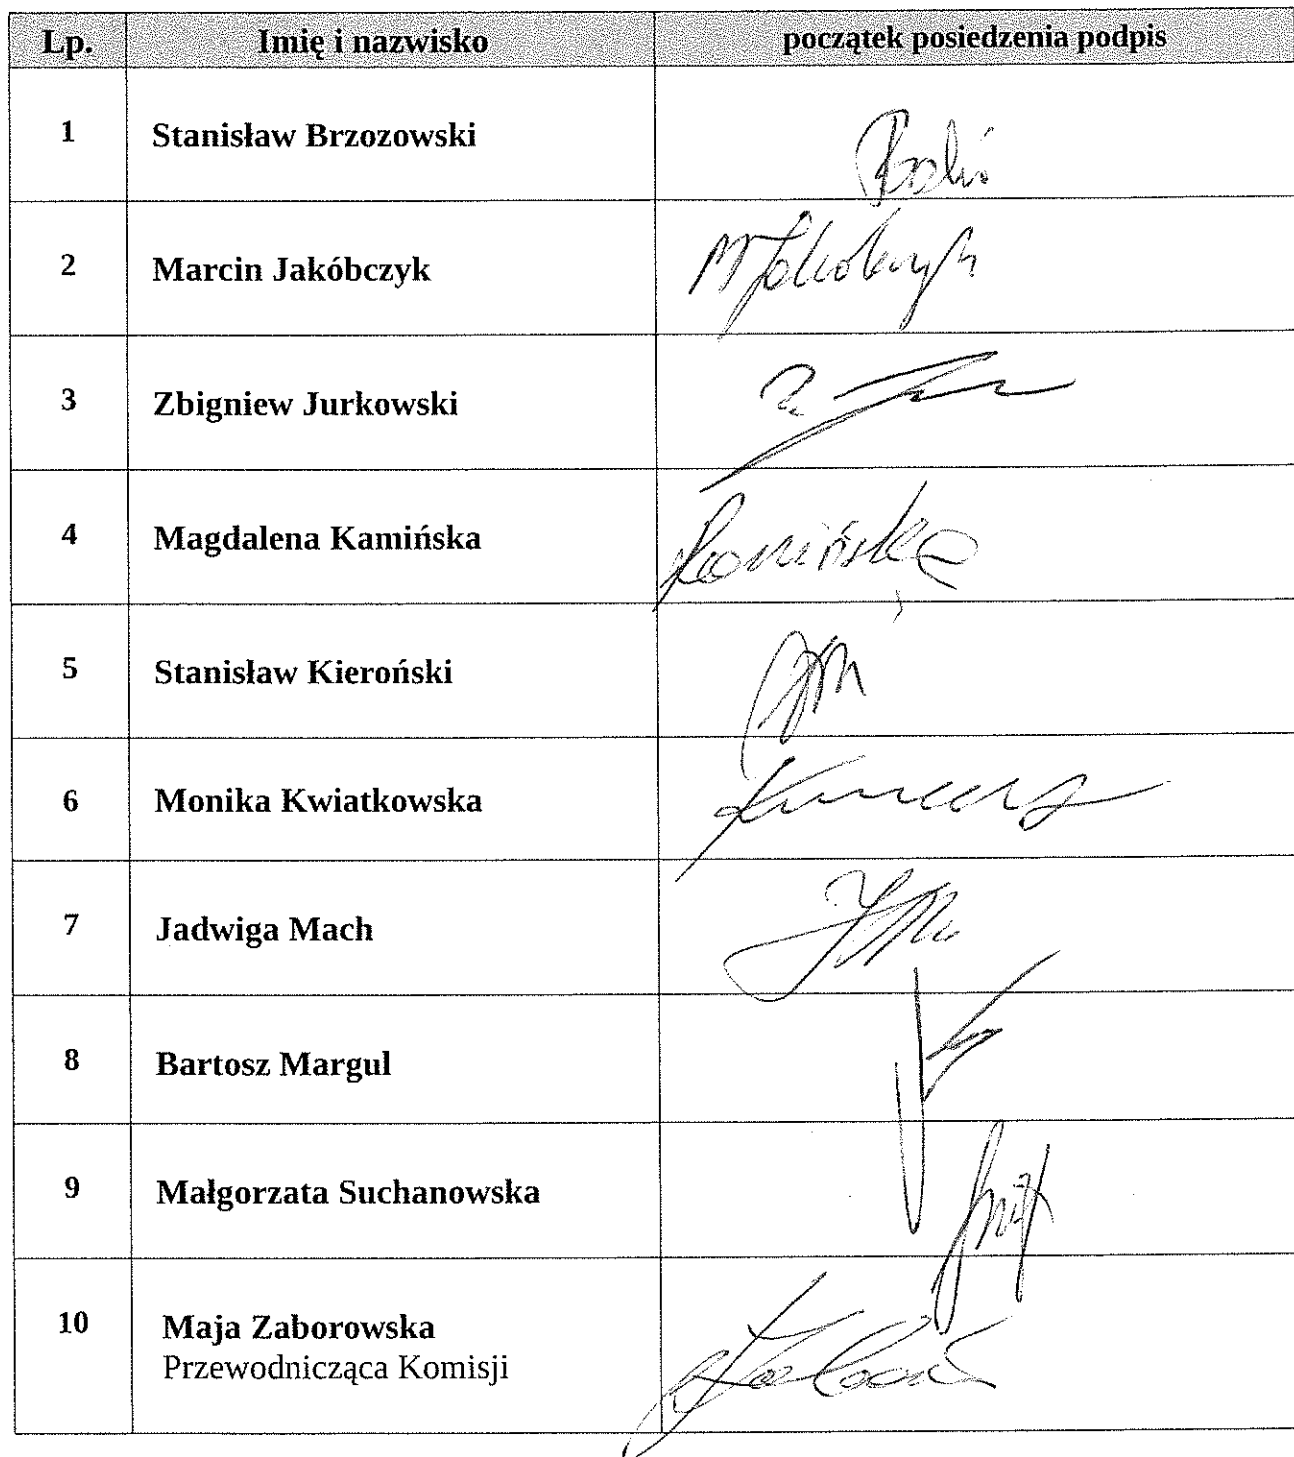 Lp. Imię i nazwisko początek posiedzenia podpis
1 Stanisław Brzozowski
2 Marcin Jakóbczyk MJakóbczyk
3 Zbigniew Jurkowski
4 Magdalena Kamińska Kamińska
5 Stanisław Kieroński
6 Monika Kwiatkowska
7 Jadwiga Mach
8 Bartosz Margul
9 Małgorzata Suchanowska
10 Maja Zaborowska
Przewodnicząca Komisji